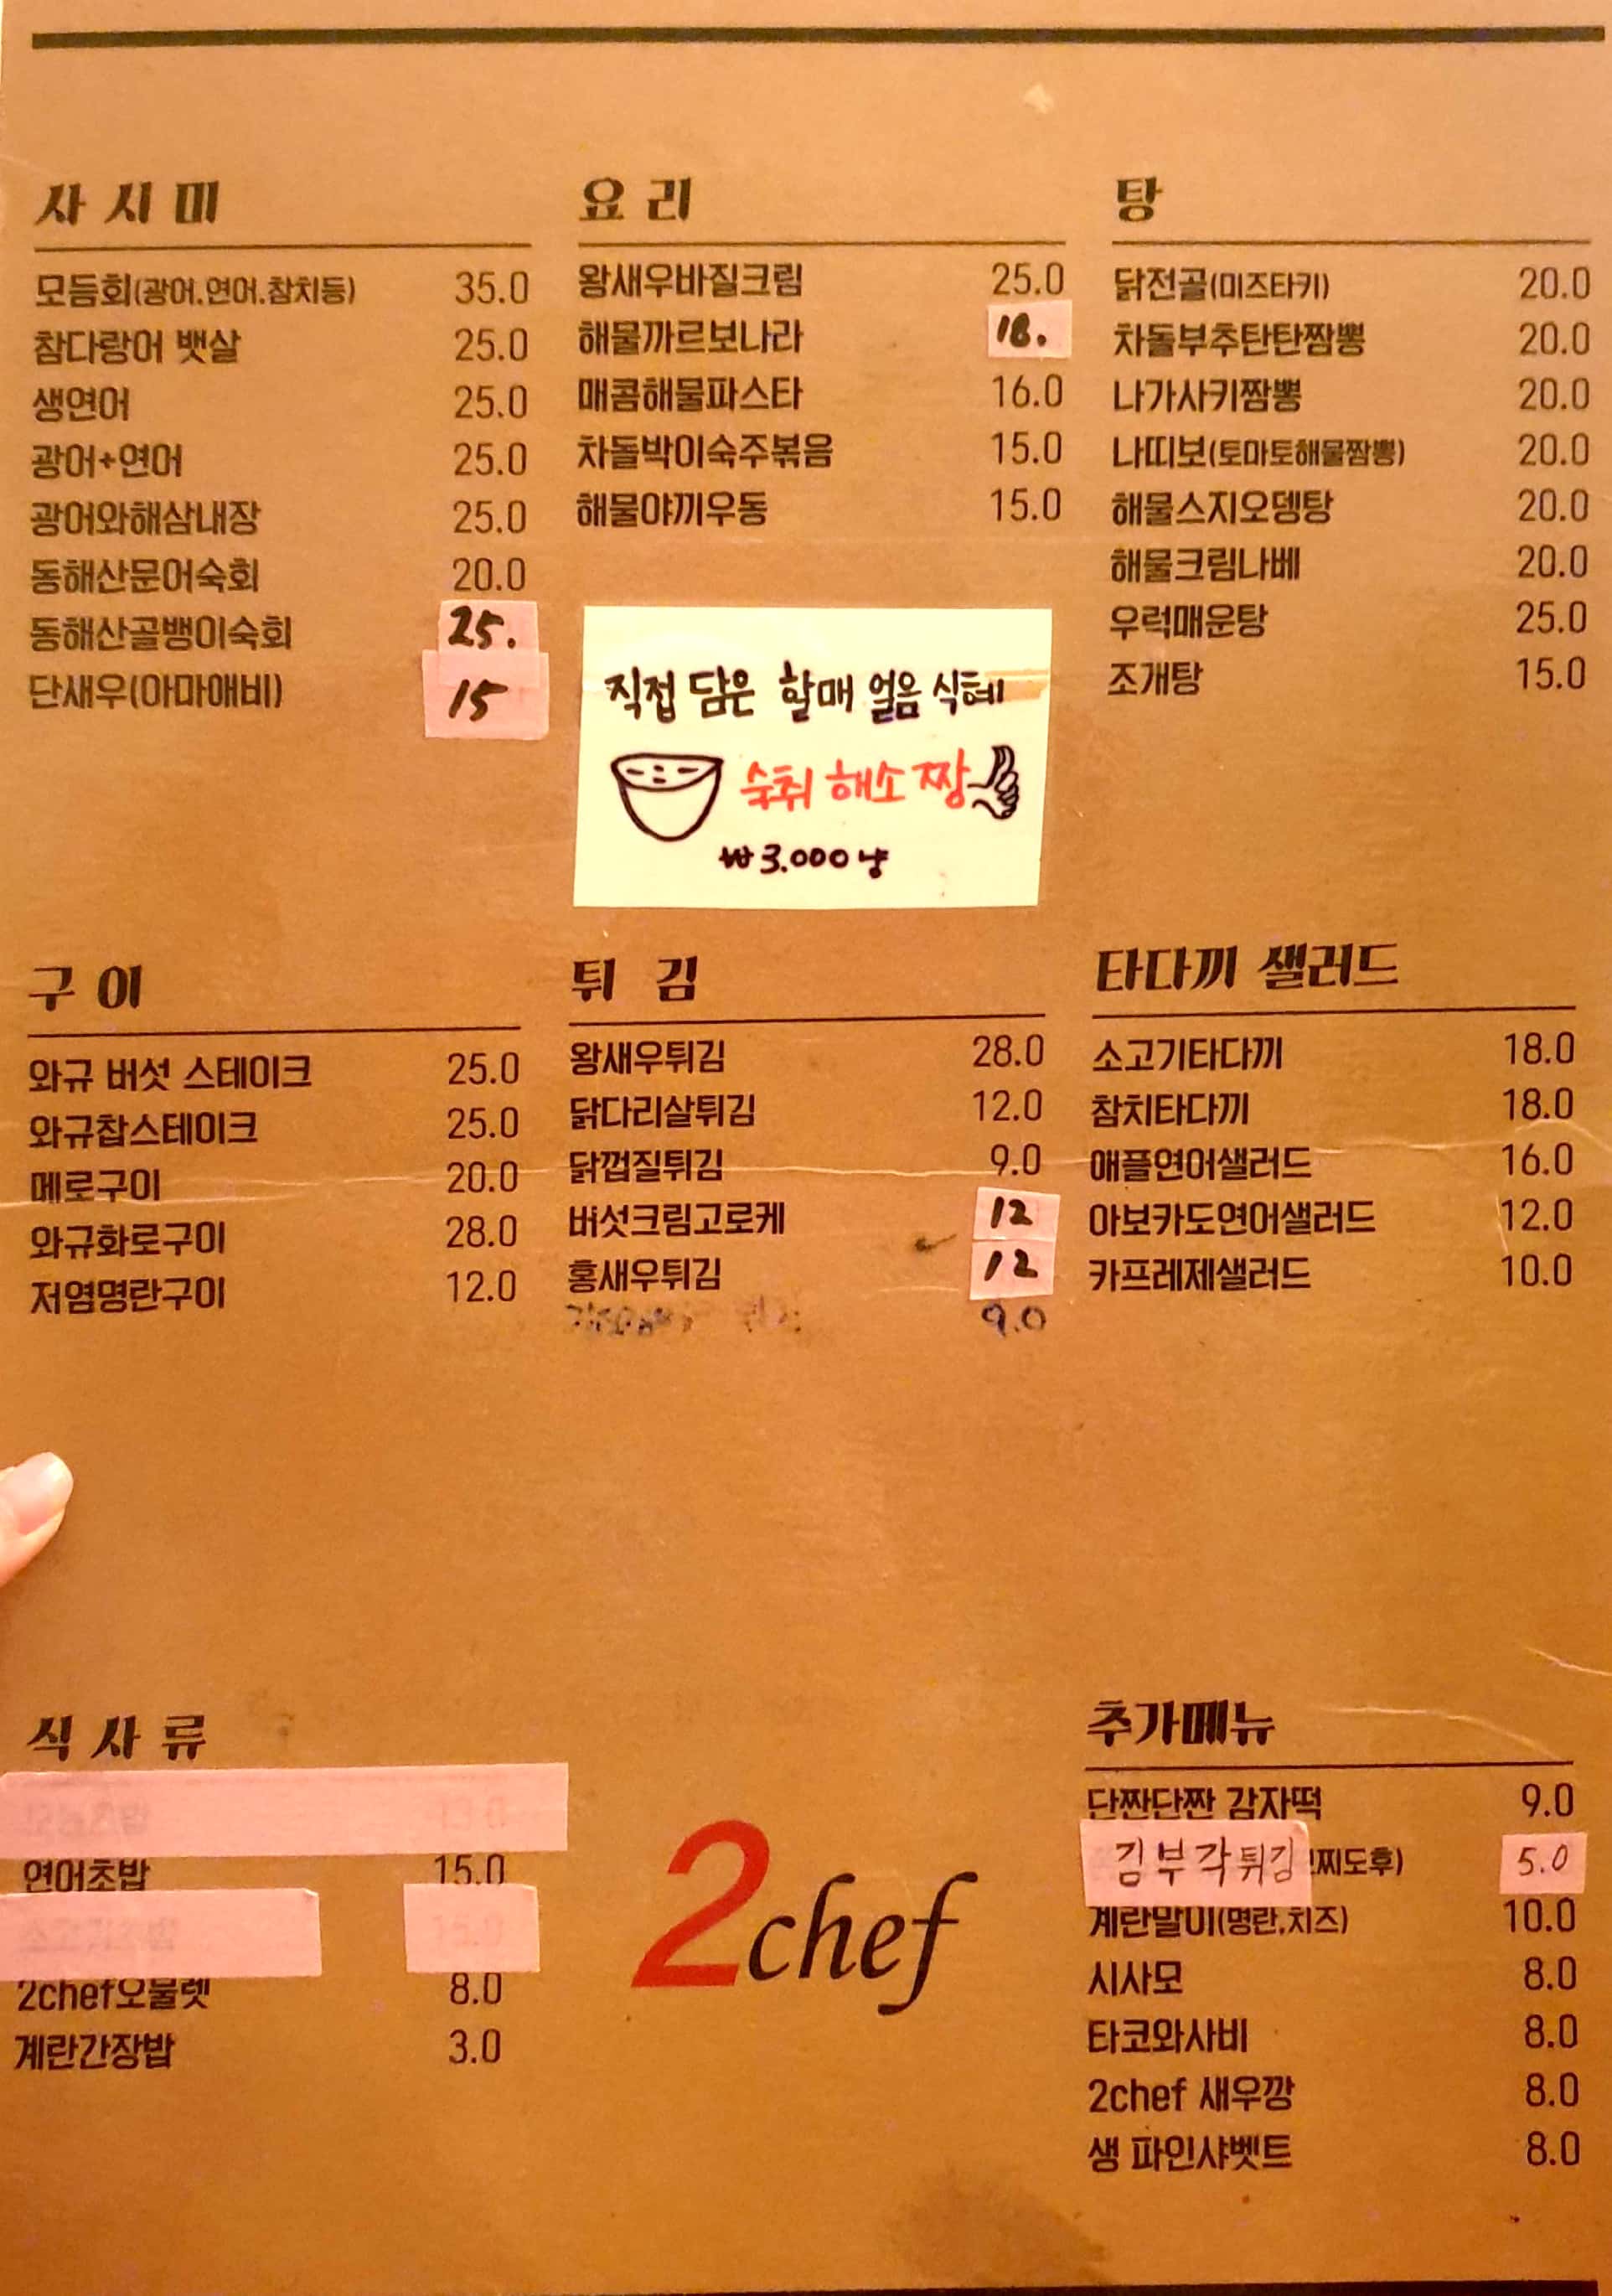 사시미
모듬회(광어.연어.참치등) 35.0
참다랑어 뱃살 25.0
생연어 25.0
광어+연어 25.0
광어와해삼내장 25.0
동해산문어숙회 20.0
동해산골뱅이숙회 25.
단새우(아마애비) 15
요리
왕새우바질크림 25.0
해물까르보나라 18.
매콤해물파스타 16.0
차돌박이숙주볶음 15.0
해물야끼우동 15.0
탕
닭전골(미즈타키) 20.0
차돌부추탄탄짬뽕 20.0
나가사키짬뽕 20.0
나띠보(토마토해물짬뽕) 20.0
해물스지오뎅탕 20.0
해물크림나베 20.0
우럭매운탕 25.0
조개탕 15.0
직접 담은 할매 얼음 식혜
숙취 해소 짱
₩3.000냥
구이
와규 버섯 스테이크 25.0
와규찹스테이크 25.0
메로구이 20.0
와규화로구이 28.0
저염명란구이 12.0
튀김
왕새우튀김 28.0
닭다리살튀김 12.0
닭껍질튀김 9.0
버섯크림고로케 12
홍새우튀김 12
9.0
타다끼 샐러드
소고기타다끼 18.0
참치타다끼 18.0
애플연어샐러드 16.0
아보카도연어샐러드 12.0
카프레제샐러드 10.0
식사류
연어초밥 15.0
2chef오믈렛 8.0
계란간장밥 3.0
2chef
추가메뉴
단짠단짠 감자떡 9.0
김부각튀김 찌도후) 5.0
계란말이(명란,치즈) 10.0
시사모 8.0
타코와사비 8.0
2chef 새우깡 8.0
생 파인샤벳트 8.0